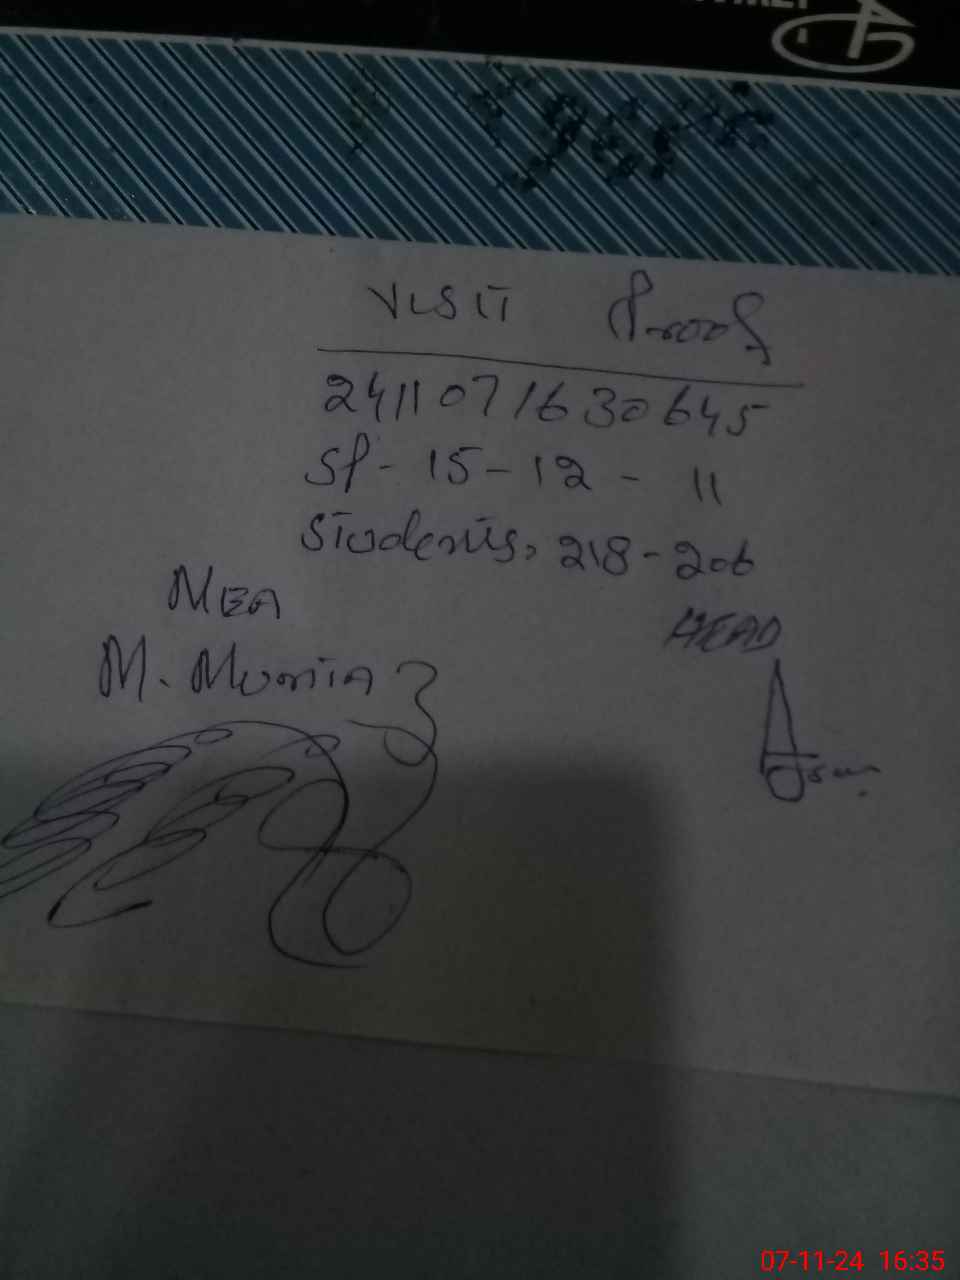 VISIT Proof
2411071630645
SP - 15 - 12 - 11
Students, 218 - 206
MEA
HEAD
07-11-24 16:35